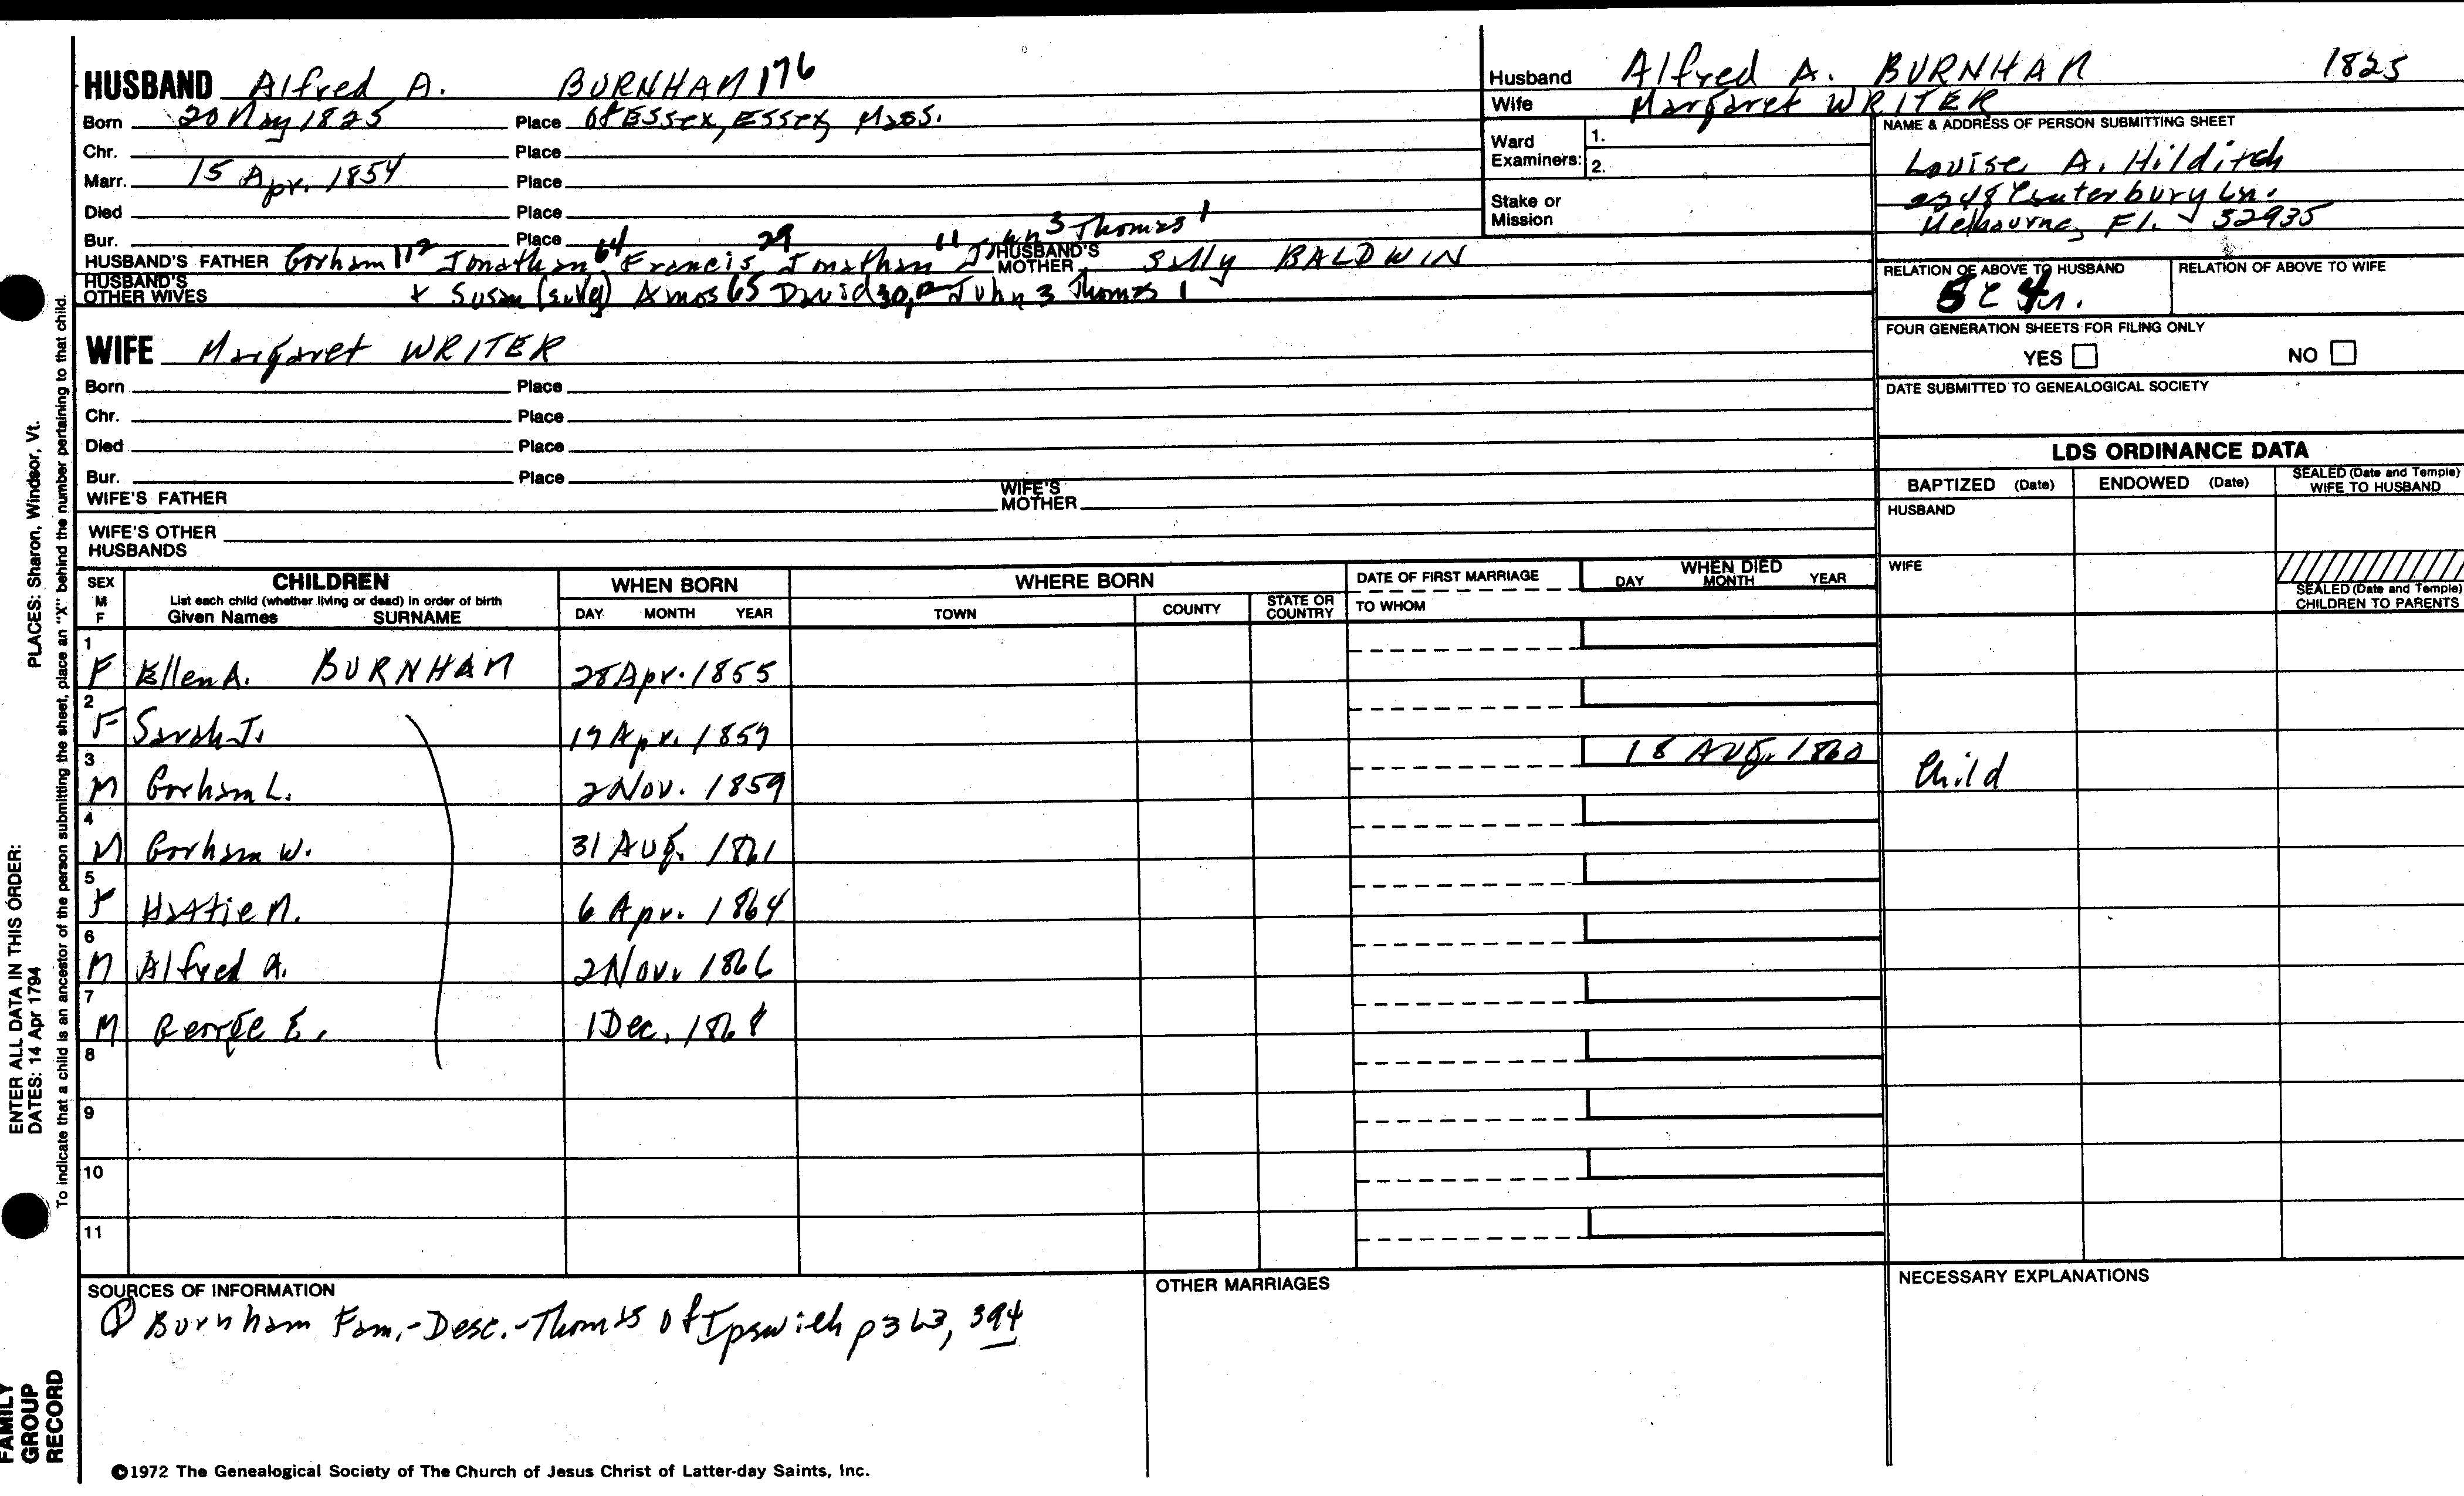 HUSBAND Alfred A. BURNHAM 176
Born 20 May 1825 Place of Essex, Essex, Mass.
Chr. Place
Marr. 15 Apr. 1854 Place
Died Place
Bur. Place
HUSBAND'S FATHER Gorham 112 Jonathan 64 Francis 29 Jonathan 11 John 3 Thomas 1 HUSBAND'S MOTHER Sally BALDWIN
HUSBAND'S OTHER WIVES + Susan Amos 65 David 30, John 3 Thomas 1
WIFE Margaret WRITER
Born Place
Chr. Place
Died Place
Bur. Place
WIFE'S FATHER WIFE'S MOTHER
WIFE'S OTHER HUSBANDS
Husband Alfred A. BURNHAM 1825
Wife Margaret WRITER
Ward Examiners: 1.
2.
Stake or Mission
NAME & ADDRESS OF PERSON SUBMITTING SHEET
Louise A. Hilditch
2248 Canterbury Ln.
Melbourne, Fl. 32935
RELATION OF ABOVE TO HUSBAND RELATION OF ABOVE TO WIFE
5C4r.
FOUR GENERATION SHEETS FOR FILING ONLY
YES NO
DATE SUBMITTED TO GENEALOGICAL SOCIETY
LDS ORDINANCE DATA
BAPTIZED (Date) ENDOWED (Date) SEALED (Date and Temple) WIFE TO HUSBAND
HUSBAND
WIFE
SEALED (Date and Temple) CHILDREN TO PARENTS
SEX M F CHILDREN List each child (whether living or dead) in order of birth Given Names SURNAME
WHEN BORN DAY MONTH YEAR
WHERE BORN TOWN COUNTY STATE OR COUNTRY
DATE OF FIRST MARRIAGE TO WHOM
WHEN DIED DAY MONTH YEAR
1 F Ellen A. BURNHAM 28 Apr. 1855
2 F Sarah J. 19 Apr. 1857
3 M Gorham L. 2 Nov. 1859 18 Aug. 1860 Child
4 M Gorham W. 31 Aug. 1861
5 F Hattie M. 6 Apr. 1864
6 M Alfred A. 2 Nov. 1866
7 M George E. 1 Dec. 1868
8
9
10
11
SOURCES OF INFORMATION
① Burnham Fam.-Desc.-Thomas of Ipswich p 363, 394
OTHER MARRIAGES
NECESSARY EXPLANATIONS
©1972 The Genealogical Society of The Church of Jesus Christ of Latter-day Saints, Inc.
FAMILY GROUP RECORD
ENTER ALL DATA IN THIS ORDER:
DATES: 14 Apr 1794
PLACES: Sharon, Windsor, Vt.
To indicate that a child is an ancestor of the person submitting the sheet, place an "X" behind the number pertaining to that child.